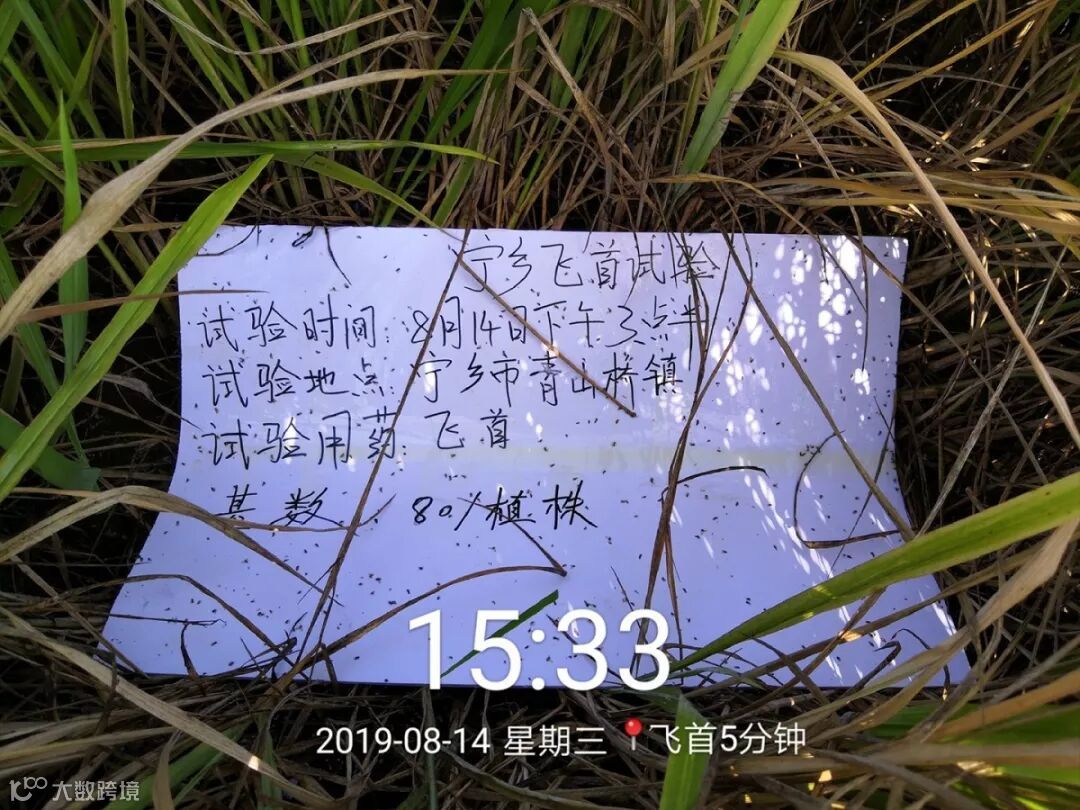 宁乡飞首试验
试验时间:8月14日下午3点半
试验地点:宁乡市青山桥镇
试验用药:飞首
基数: 80/植株
15:33
2019-08-14 星期三 飞首5分钟
大数跨境